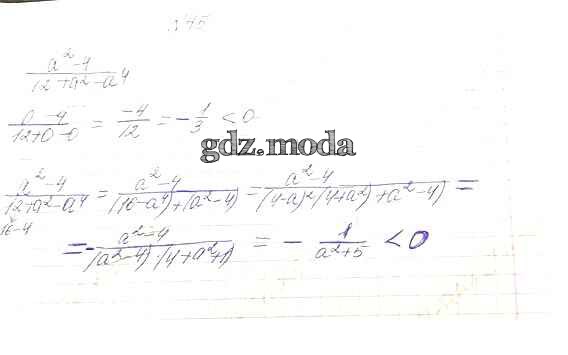 N45
a²-4 / 12+a²-a⁴
0-4 / 12+0-0 = -4 / 12 = -1/3 < 0
gdz.moda
a²-4 / 12+a²-a⁴ = a²-4 / (16-a⁴)+(a²-4) = a²-4 / (4-a)²(4+a²)+a²-4) =
16-4
= - a²-4 / (a²-4)·(4+a²+1) = - 1 / a²+5 < 0